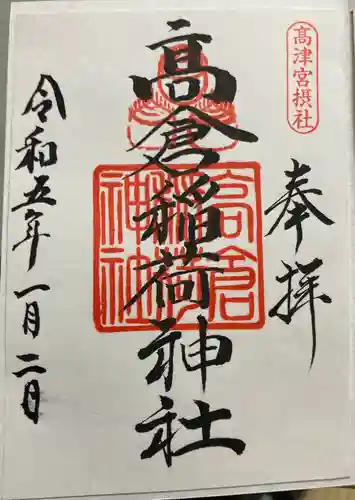 髙津宮摂社
奉拝
髙倉稲荷神社
高倉
稲荷
神社
令和五年一月二日